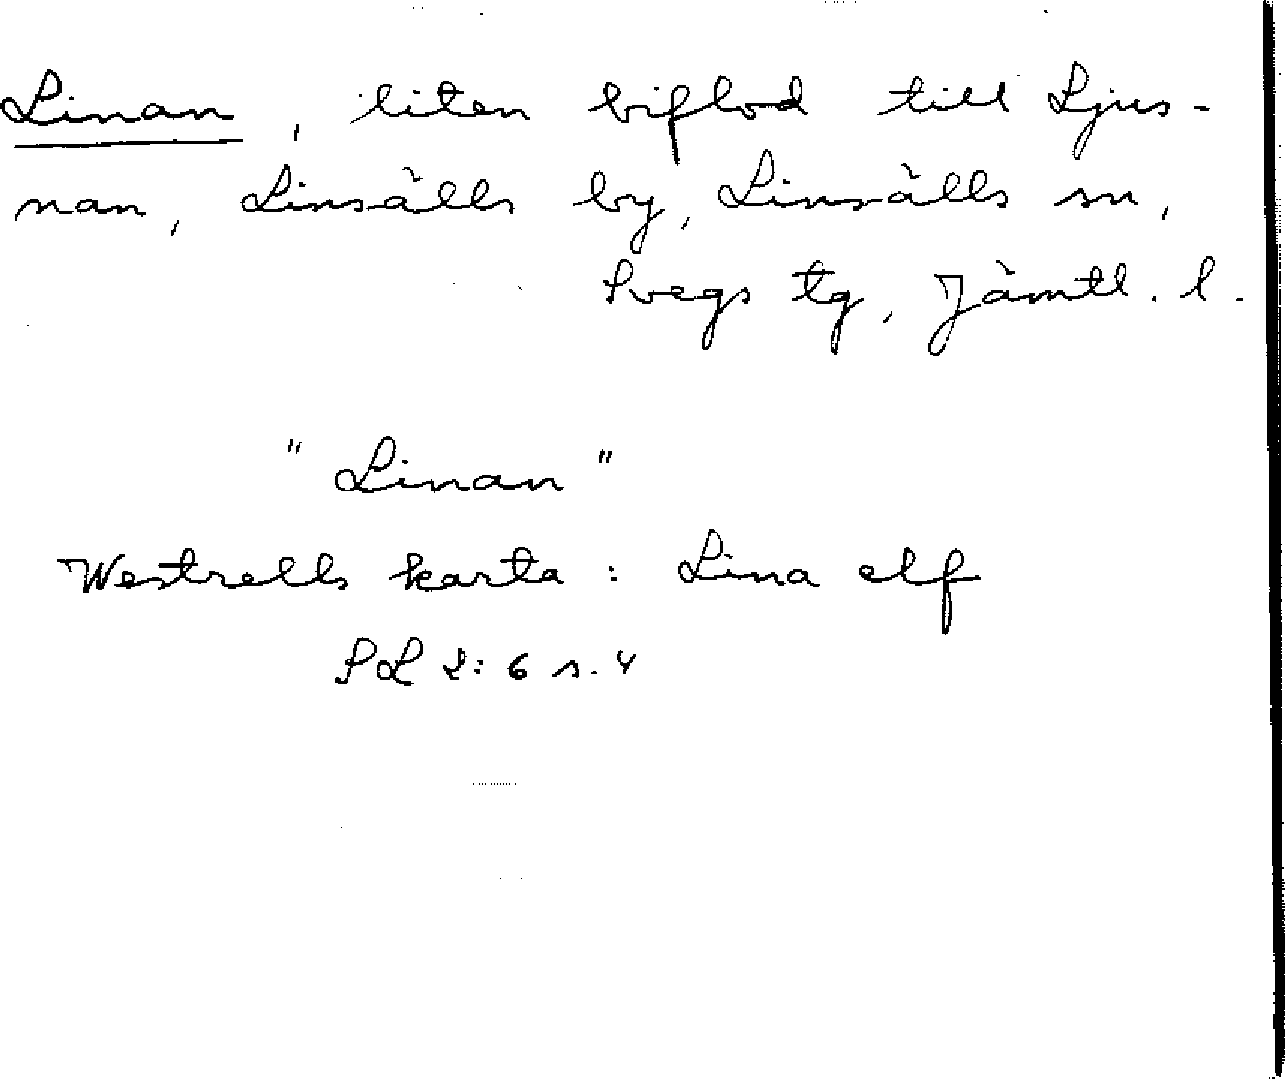 Linan, liten biflod till Ljus-
nan, Linsälls by, Linsälls sn,
Svegs tg, Jämtl. l.
"Linan"
Westrells karta: Lina elf
SOL 2:6 s. 4